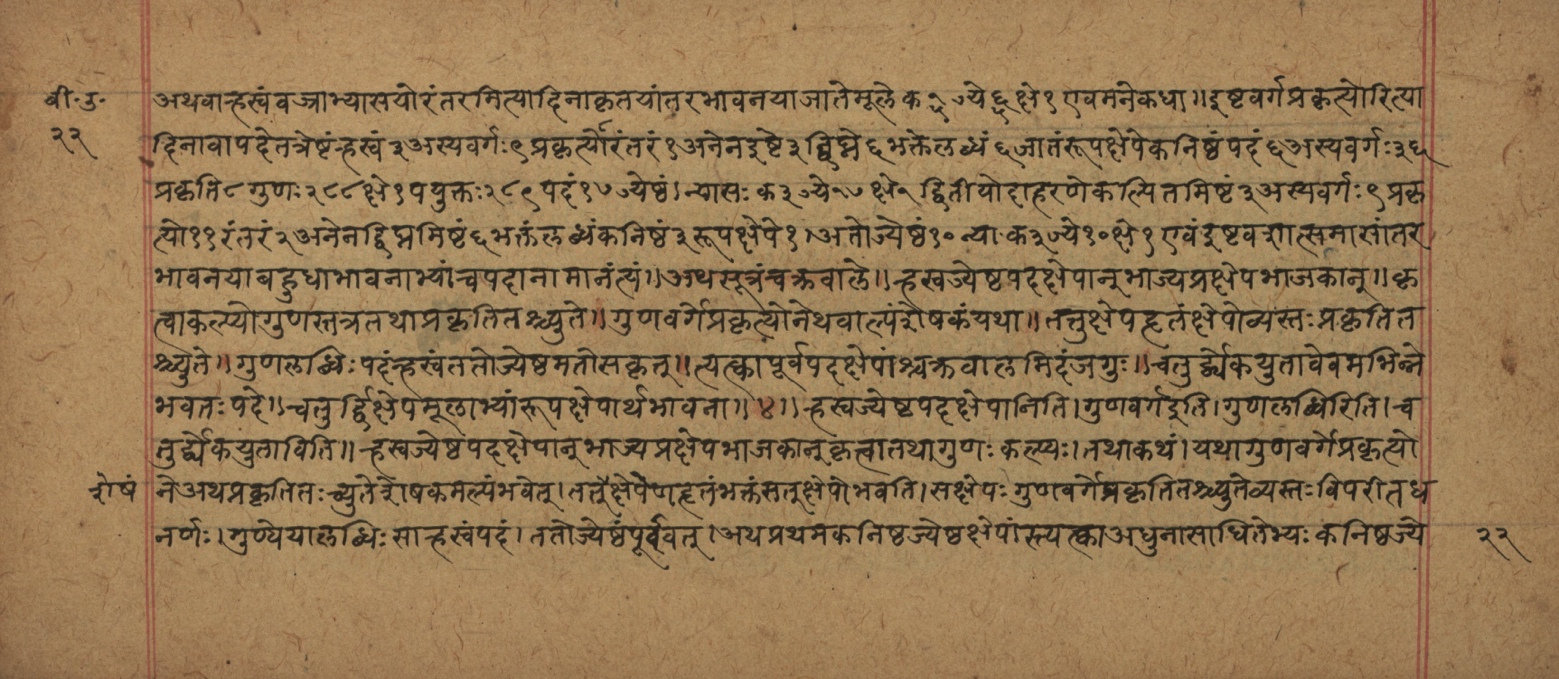 बी॰उ॰
२२
अथवाऱ्हस्वंवज्राभ्यासयोरंतरमित्यादिनाकृतयांतरभावनयाजातेमूलेक३ज्ये६क्षे१एवमनेकधा॥इष्टवर्गप्रकृत्योरित्या
दिनावापदेतत्रेष्टंऱ्हस्वं३अस्यवर्गः९प्रकृत्योरंतरं१अनेनइष्टे३द्विघ्ने६भक्तेलब्धं६जातंरूपक्षेपेकनिष्ठंपदं६अस्यवर्गः३६
प्रकृति८गुणः२८८क्षे१पयुक्तः२८९पदं१७ज्येष्ठं।न्यासःक३ज्ये१७क्षे१द्वितीयोदाहरणेकल्पितमिष्टं३अस्यवर्गः९प्रकृ
त्यो११रंतरं२अनेनद्विघ्नमिष्टं६भक्तंलब्धंकनिष्ठं३रूपक्षेपे१।अतोज्येष्ठं१०न्याक३ज्ये१०क्षे१एवंइष्टवशात्समासांतर
भावनयाबहुधाभावनाभ्यांचपदानामानंत्यं॥अथसूत्रंचक्रवाले॥ऱ्हस्वज्येष्ठपदक्षेपान्भाज्यप्रक्षेपभाजकान्॥कृ
त्वाकल्प्योगुणस्तत्रतथाप्रकृतितश्च्युते॥गुणवर्गेप्रकृत्योनेथवाल्पंशेषकंयथा॥तत्तुक्षेपहृतंक्षेपोव्यस्तःप्रकृतित
श्च्युते॥गुणलब्धिःपदंऱ्हस्वंततोज्येष्ठमतोसकृत्॥त्यत्कापूर्वपदक्षेपांश्चक्रवालमिदंजगुः॥चतुर्द्व्येकयुतावेवमभिन्ने
भवतःपदे॥चतुर्द्विक्षेपमूलाभ्यांरूपक्षेपार्थभावना॥४॥ऱ्हस्वज्येष्टपदक्षेपानिति।गुणवर्गइति।गुणलब्धिरिति।च
तुर्द्व्येकयुताविति॥ऱ्हस्वज्येष्ठपदक्षेपान्भाज्यप्रक्षेपभाजकान्कृत्वातथागुणःकल्प्यः।तथाकथं।यथागुणवर्गेप्रकृत्यो
शेषं
नेअथप्रकृतितःच्युतेशेषकमल्पंभवेत्।तत्तुक्षेपेणहृतंभक्तंसत्क्षेपोभवति।सक्षेपःगुणवर्गेप्रकृतितश्च्युतेव्यस्तःविपरीतध
नर्णः।गुण्येयालब्धिःसाऱ्हस्वंपदं।ततोज्येष्ठंपूर्ववत्।अथप्रथमकनिष्ठज्येष्ठक्षेपांस्त्यत्काअधुनासाधितेभ्यःकनिष्ठज्ये
२२